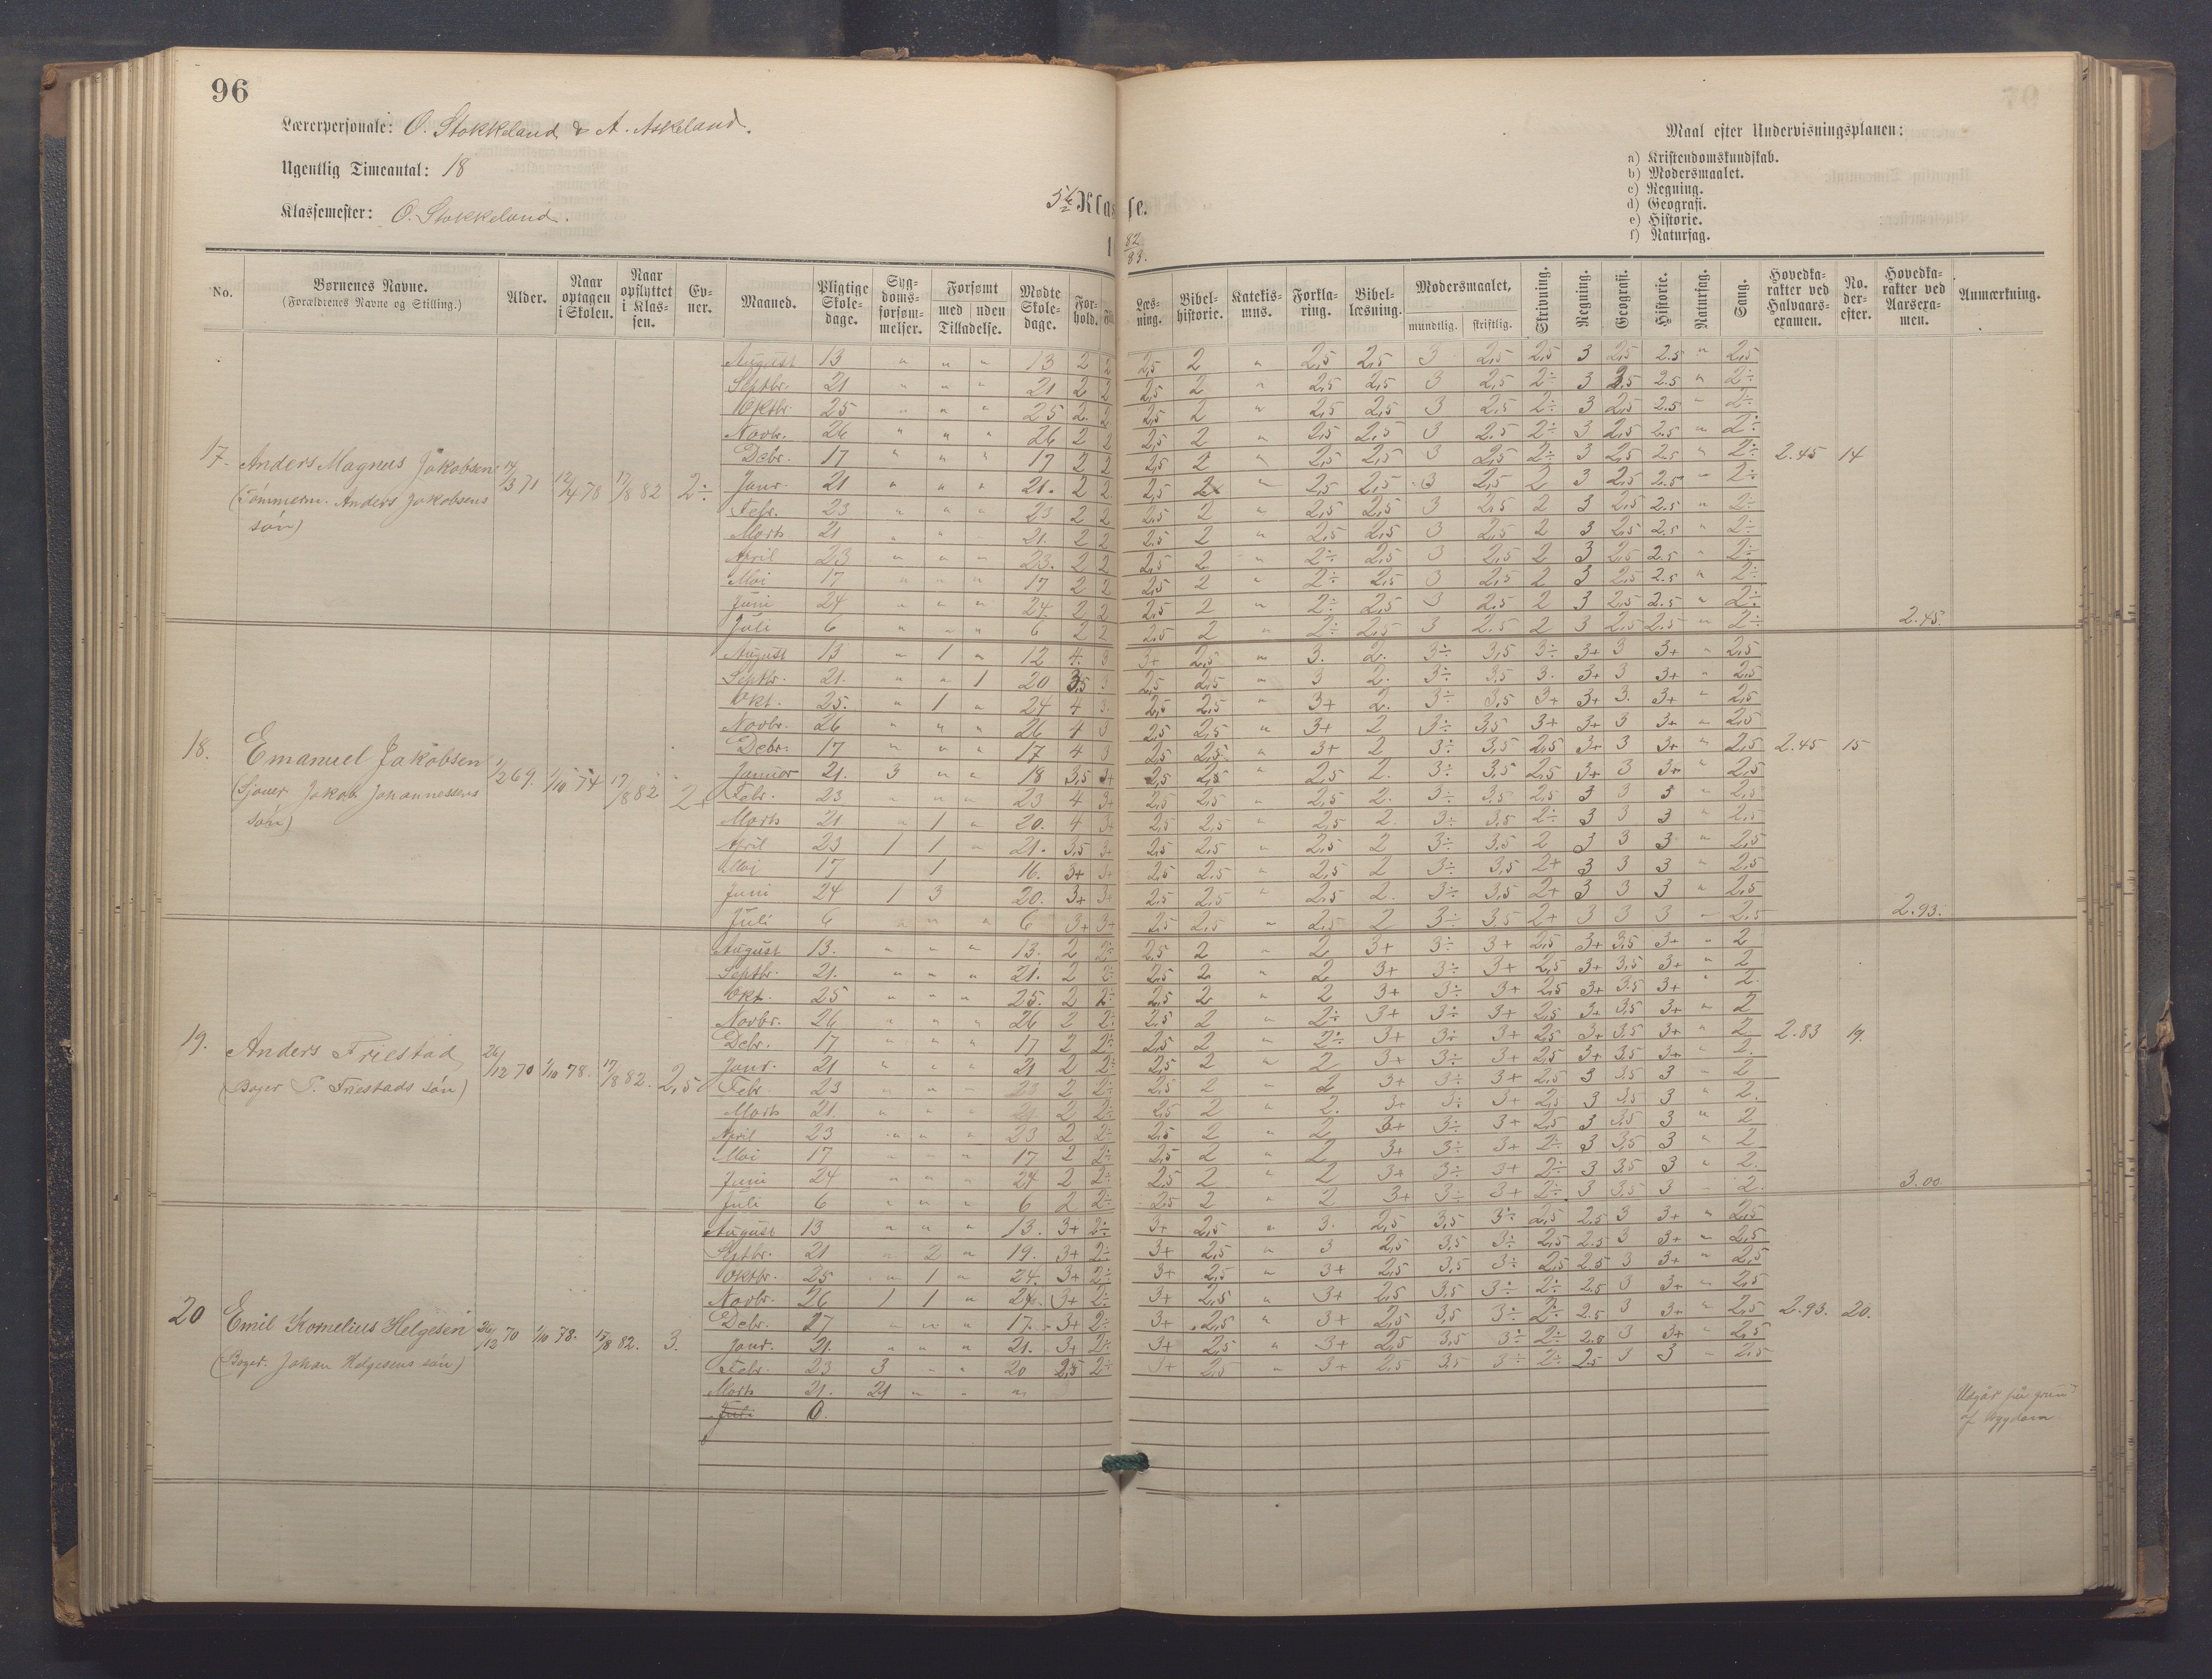 96
Lærerpersonale: O. Stokkeland & A. Askeland.
Ugentlig Timeantal: 18
Klassemester: O. Stokkeland.
5te Klasse.
1 82/83.
Maal efter Undervisningsplanen:
a) Kristendomskundskab.
b) Modersmaalet.
c) Regning.
d) Geografi.
e) Historie.
f) Naturfag.
No. | Børnenes Navne. (Forældrenes Navne og Stilling.) | Alder. | Naar optagen i Skolen. | Naar opflyttet i Klassen. | Evner. | Maaned. | Pligtige Skoledage. | Sygdomsforsømmelser. | Forsømt med / uden Tilladelse. | Mødte Skoledage. | Forhold. | Læsning. | Bibelhistorie. | Katekismus. | Forklaring. | Bibellæsning. | Modersmaalet, mundtlig. / skriftlig. | Skrivning. | Regning. | Geografi. | Historie. | Naturfag. | Sang. | Hovedkarakter ved Halvaarsexamen. | No. derefter. | Hovedkarakter ved Aarsexamen. | Anmærkning.
17. Anders Magnus Jakobsen 14/3 71 12/4 78 17/8 82 2÷
(Tømmerm. Anders Jakobsens søn)
August 13 " " " 13 2 2 2,5 2 " 2,5 2,5 3 2,5 2,5 3 2,5 2.5 " 2,5
Septbr. 21 " " " 21 2 2 2,5 2 " 2,5 2,5 3 2,5 2÷ 3 2,5 2.5 " 2÷
Oktbr. 25 " " " 25 2 2 2,5 2 " 2,5 2,5 3 2,5 2÷ 3 2,5 2.5 " 2÷
Novbr. 26 " " " 26 2 2 2,5 2 " 2,5 2,5 3 2.5 2÷ 3 2,5 2.5 " 2÷
Debr. 17 " " " 17 2 2 2,5 2 " 2,5 2,5 3 2,5 2÷ 3 2,5 2.5 " 2÷ 2.45 14
Janr. 21 " " " 21. 2 2 2,5 2 " 2,5 2,5 3 2,5 2 3 2,5 2.5 " 2÷
Febr. 23 " " " 23 2 2 2,5 2 " 2,5 2,5 3 2,5 2 3 2,5 2.5 " 2÷
Marts 21 " " " 21. 2 2 2,5 2 " 2,5 2,5 3 2,5 2 3 2,5 2.5 " 2÷
April 23 " " " 23. 2 2 2,5 2 " 2÷ 2,5 3 2,5 2 3 2,5 2.5 " 2÷
Mai 17 " " " 17 2 2 2,5 2 " 2÷ 2,5 3 2,5 2 3 2,5 2.5 " 2÷
Juni 24 " " " 24. 2 2 2,5 2 " 2÷ 2,5 3 2.5 2 3 2,5 2.5 " 2÷
Juli 6 " " " 6 2 2 2.5 2 " 2÷ 2,5 3 2.5 2 3 2,5 2.5 " 2÷ 2.45.
18. Emanuel Jakobsen 1/2 69. 1/10 74 17/8 82 2+
(Sjouer Jakob Johannessens søn)
August 13 " 1 " 12 4. 3 3+ 2,5 " 3. 2. 3÷ 3,5 3÷ 3+ 3 3+ " 2,5
Septbr. 21. " " 1 20 3,5 3 2,5 2,5 " 3 2. 3÷ 3,5 3. 3+ 3 3+ " 2,5
Okt. 25. " 1 " 24 4 3. 2,5 2,5 " 3+ 2. 3÷ 3,5 3+ 3+ 3. 3+ " 2,5
Novbr. 26 " " " 26 4 3 2,5 2,5 " 3+ 2 3÷ 3,5 3+ 3+ 3 3+ " 2,5
Debr. 17 " " " 17 4 3 2,5 2,5 " 3+ 2 3÷ 3,5 2,5 3+ 3 3+ " 2,5 2.45 15
Januar 21. 3 " " 18 3,5 3+ 2,5 2,5 " 2,5 2. 3÷ 3,5 2,5 3+ 3 3+ " 2,5
Febr. 23 " " " 23 4 3+ 2,5 2,5 " 2,5 2. 3÷ 3,5 2,5 3 3 3 " 2,5
Marts 21 " 1 " 20. 4 3+ 2,5 2,5 " 2,5 2. 3÷ 3,5 2÷ 3 3 3 " 2,5
April 23 1 1 " 21. 3,5 3+ 2,5 2,5 " 2,5 2 3÷ 3,5 2 3 3 3 " 2,5
Mai 17 1 16. 3+ 3+ 2,5 2,5 " 2,5 2 3÷ 3,5 2+ 3 3 3 " 2,5
Juni 24 1 3 20. 3+ 3+ 2,5 2,5 " 2,5 2. 3÷ 3,5 2+ 3 3 3 " 2,5
Juli 6 " " " 6 3+ 3+ 2,5 2,5 " 2,5 2 3÷ 3,5 2+ 3 3 3 " 2,5 2.93.
19. Anders Friestad 26/12 70 1/10 78. 17/8 82. 2,5
(Bager T. Friestads søn)
August 13. " " " 13. 2 2÷ 2,5 2 " 2 3+ 3÷ 3+ 2,5 3+ 3,5 3+ " 2
Septbr. 21. " " " 21. 2 2÷ 2,5 2 " 2 3+ 3÷ 3+ 2,5 3+ 3,5 3+ " 2
Okt. 25 " " " 25. 2 2÷ 2,5 2 " 2 3+ 3÷ 3+ 2,5 3+ 3.5 3+ " 2.
Novbr. 26 " " " 26 2 2÷ 2,5 2 " 2÷ 3+ 3÷ 3+ 2,5 3+ 3,5 3+ " 2
Debr. 17 " " " 17 2 2÷ 2,5 2 " 2÷ 3+ 3÷ 3+ 2,5 3+ 3,5 3+ " 2 2.83 19.
Janr. 21 " " " 21 2 2÷ 2,5 2 " 2 3+ 3÷ 3+ 2,5 3+ 3,5 3+ " 2.
Febr 23 " " " 23 2 2÷ 2,5 2 " 2 3+ 3÷ 3+ 2,5 3 3,5 3 " 2
Marts 21. " " " 21 2 2÷ 2,5 2 " 2. 3+ 3÷ 3+ 2,5 3 3,5 3 " 2.
April 23 " " " 23 2 2÷ 2,5 2 " 2 3+ 3÷ 3+ 2,5 3 3,5 3 " 2
Mai 17 " " " 17 2 2÷ 2,5 2 " 2 3+ 3÷ 3+ 2÷ 3 3,5 3 " 2
Juni 24 " " " 24 2 2÷ 2,5 2 " 2 3+ 3÷ 3+ 2÷ 3 3,5 3 " 2.
Juli 6 " " " 6 2 2÷ 2,5 2 " 2 3+ 3÷ 3+ 2÷ 3 3,5 3 " 2. 3.00
20 Emil Kornelius Helgesen 26/12 70 1/10 78. 17/8 82. 3.
(Bager. Johan Helgesens søn)
August 13 " " " 13. 3+ 2÷ 3+ 2,5 " 3. 2,5 3,5 3÷ 2,5 2.5 3 3+ " 2,5
Septbr. 21 " 2 " 19. 3+ 2÷ 3+ 2,5 " 3 2,5 3,5 3÷ 2,5 2.5 3 3+ " 2,5
Oktbr. 25 " 1 " 24. 3+ 2÷ 3+ 2,5 " 3+ 2,5 3,5 3÷ 2,5 2.5 3 3+ " 2,5
Novbr. 26 1 1 " 24. 3+ 2÷ 3+ 2,5 " 3+ 2,5 3,5 3÷ 2÷ 2.5 3 3+ " 2,5
Debr. 27 " " " 17. 3+ 2÷ 3+ 2,5 " 3+ 2,5 3,5 3÷ 2÷ 2.5 3 3+ " 2,5 2.93. 20.
Janr. 21. " " " 21. 3+ 2÷ 3+ 2,5 " 3+ 2,5 3,5 3÷ 2÷ 2.5 3 3+ " 2,5
Febr. 23 3 " " 20 2,5 2÷ 3+ 2,5 " 3+ 2,5 3,5 3÷ 2÷ 2.5 3 3 " 2,5
Marts 21. 21 " " "
Juli 0.
Udgår på grund
af Sygdom